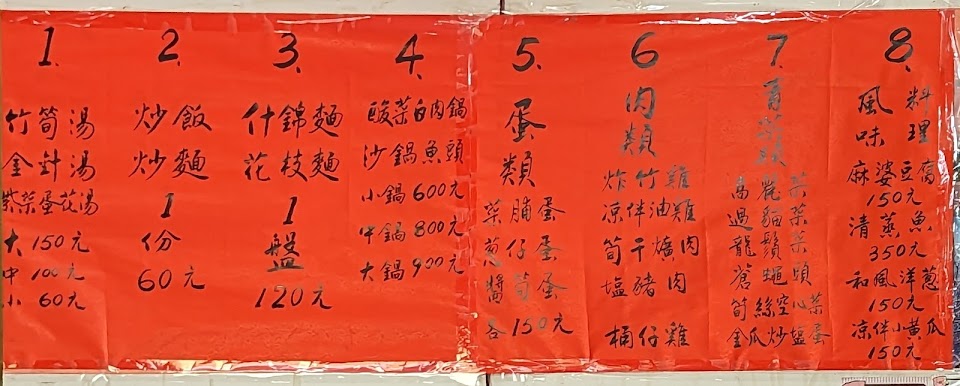 1.
竹筍湯
金針湯
紫菜蛋花湯
大 150元
中 100元
小 60元
2.
炒飯
炒麵
1
份
60元
3.
什錦麵
花枝麵
1
盤
120元
4.
酸菜白肉鍋
沙鍋魚頭
小鍋600元
中鍋800元
大鍋900元
5.
蛋
類
菜脯蛋
蔥仔蛋
醬筍蛋
各150元
6
肉
類
炸竹雞
涼伴油雞
筍干爌肉
塩豬肉
桶仔雞
7.
青
菜
類
高麗菜
過貓菜
龍鬚菜
蒼蠅頭
筍絲空心菜
金瓜炒塩蛋
8.
風味料理
麻婆豆腐
150元
清蒸魚
350元
和風洋蔥
150元
涼伴小黃瓜
150元